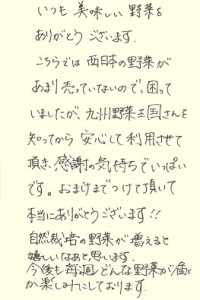 いつも 美味しい 野菜を
ありがとう ございます.
こちらでは 西日本の 野菜が
あまり 売っていないので、困って
いましたが、九州野菜王国さんを
知ってから 安心して 利用させて
頂き、感謝の気持ちでいっぱい
です。おまけまでつけて頂いて
本当にありがとうございます!!
自然栽培の野菜が増えると
嬉しいなあと思います.
今後も毎週どんな野菜が届く
か楽しみにしております.